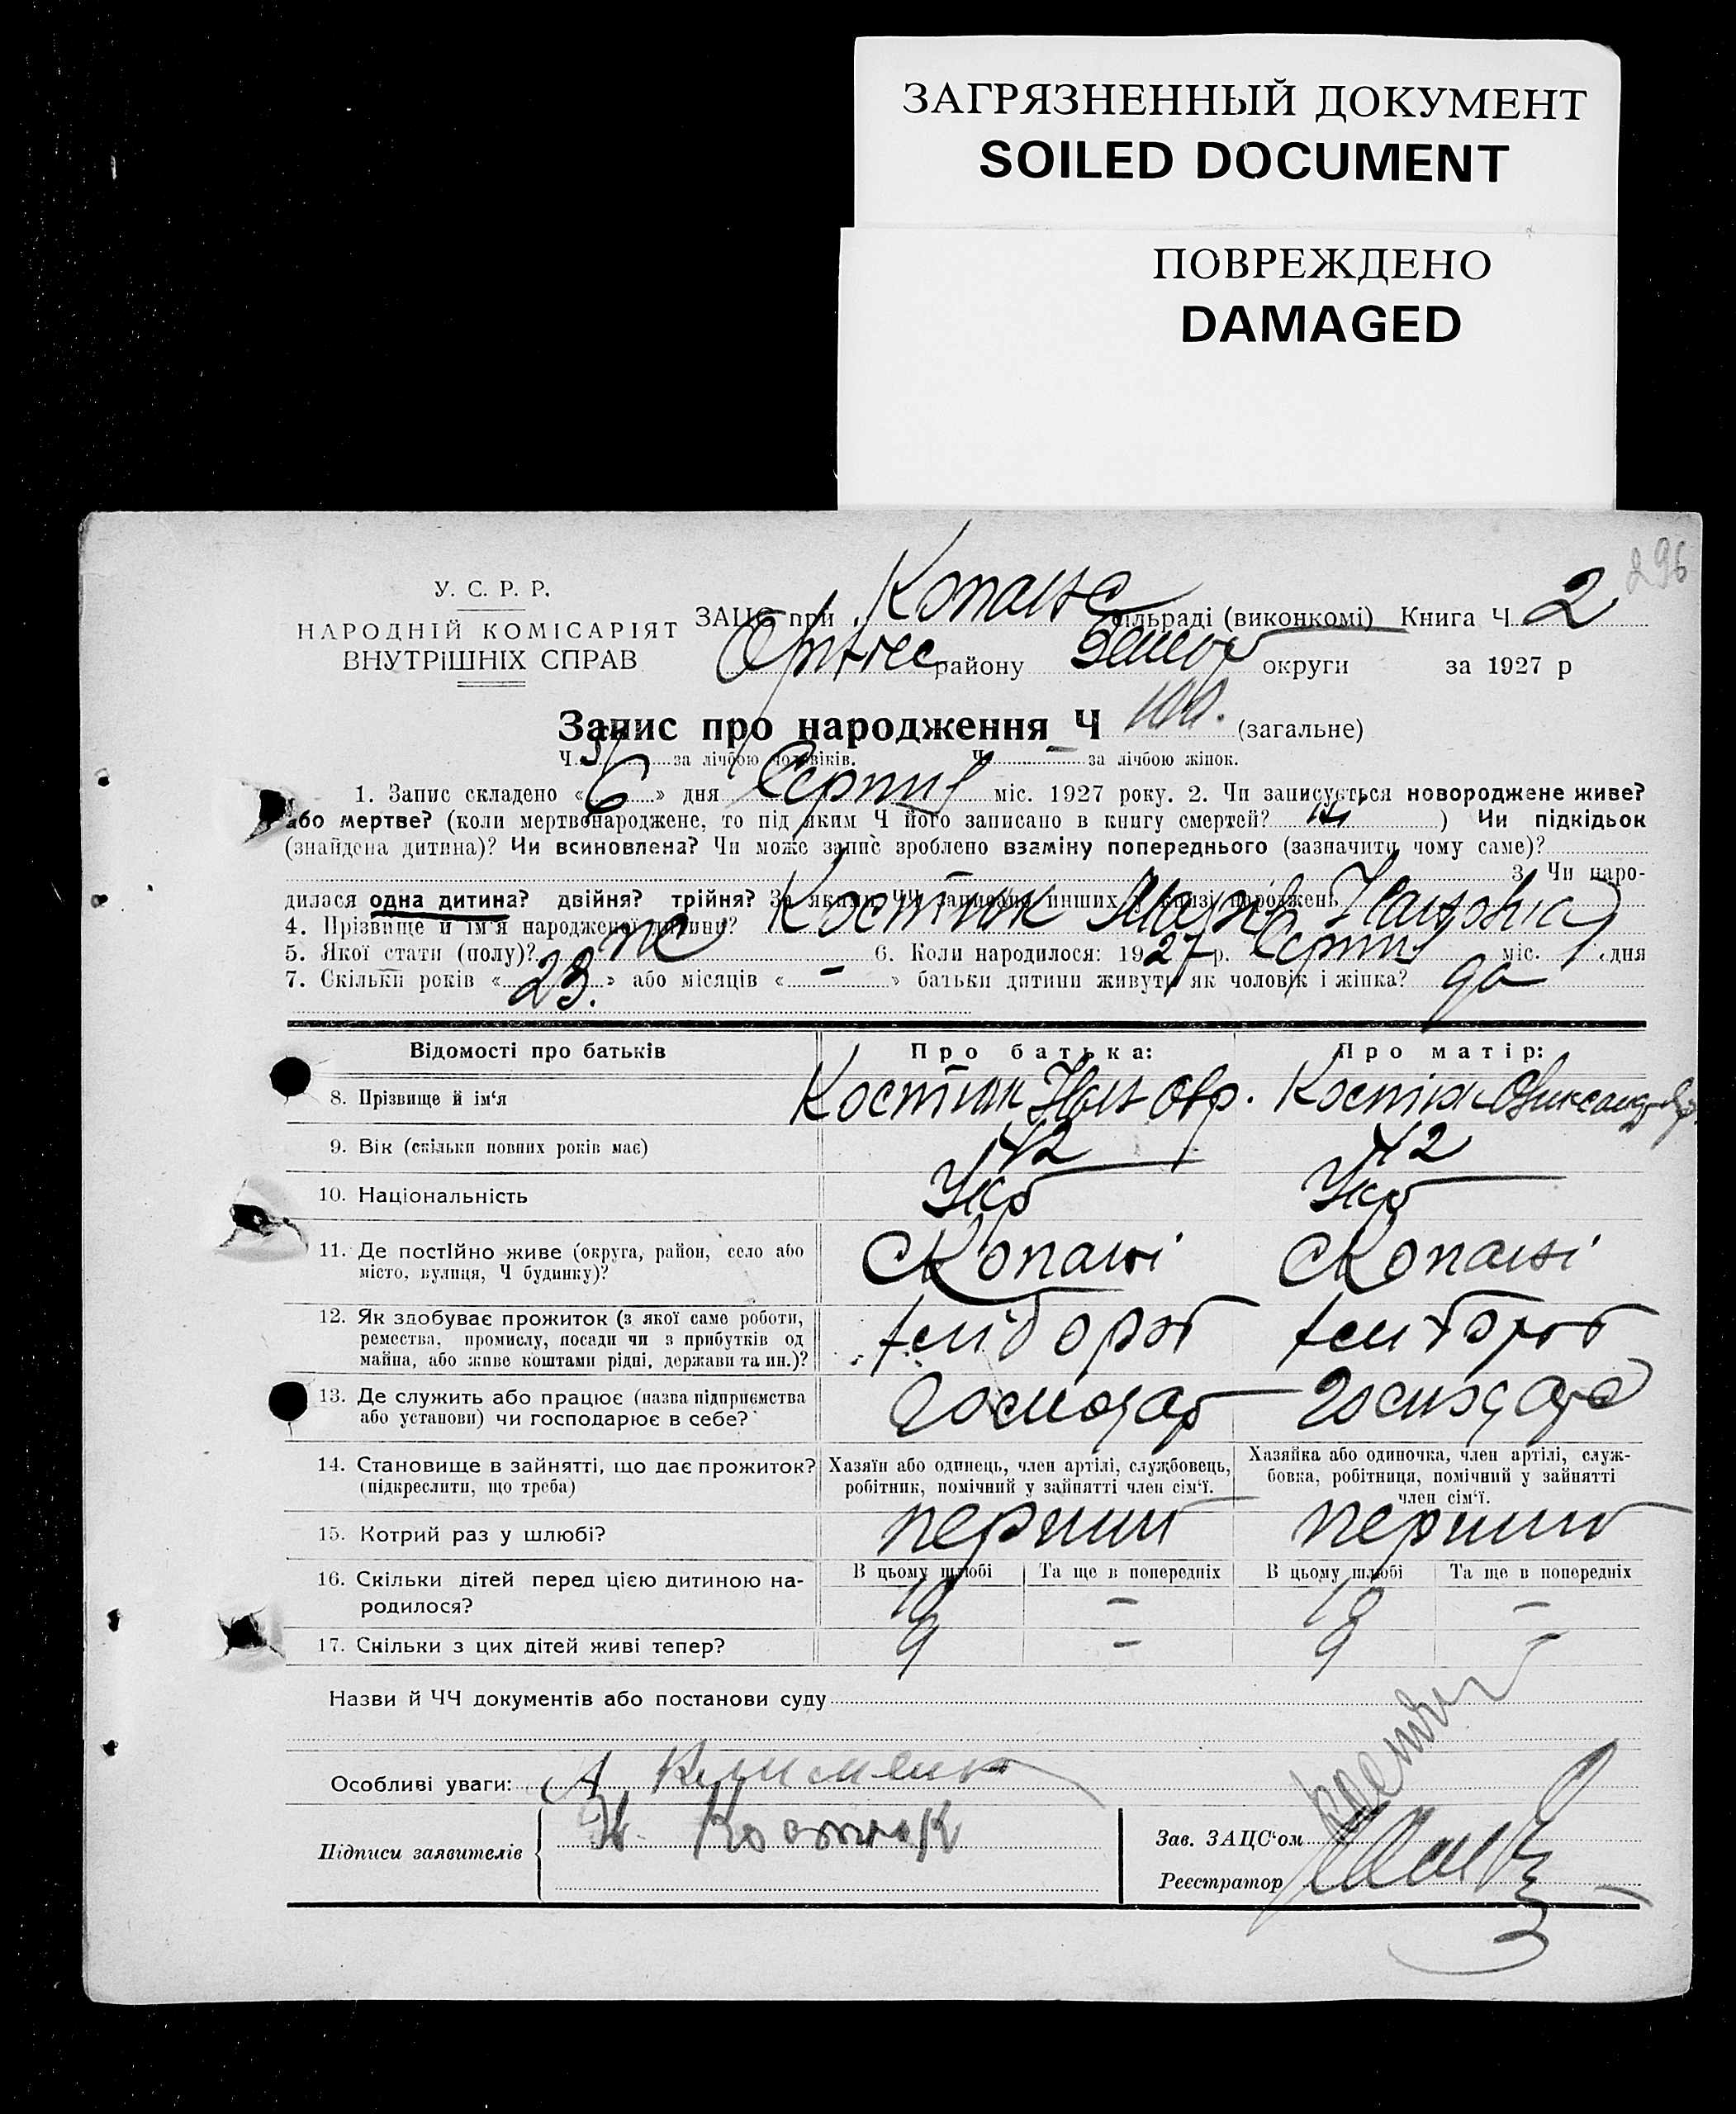 ЗАГРЯЗНЕННЫЙ ДОКУМЕНТ
SOILED DOCUMENT
ПОВРЕЖДЕНО
DAMAGED
296
У. С. Р. Р.
НАРОДНІЙ КОМІСАРІЯТ
ВНУТРІШНІХ СПРАВ
ЗАЦС при сільраді (виконкомі) Книга Ч. 2
району округи за 1927 р
Запис про народження Ч 100. (загальне)
Ч. за лічбою чоловіків. Ч. за лічбою жінок.
1. Запис складено « 6 » дня міс. 1927 року. 2. Чи записується новороджене живе?
або мертве? (коли мертвонароджене, то під яким Ч його записано в книгу смертей? ) Чи підкідьок
(знайдена дитина)? Чи всиновлена? Чи може запис зроблено взаміну попереднього (зазначити чому саме)?
3. Чи наро-
дилася одна дитина? двійня? трійня? За якими ЧЧ записано инших у книзі народжень
4. Прізвище й ім'я народженої дитини? Костюк
5. Якої стати (полу)? 6. Коли народилося: 1927 р. міс. дня
7. Скільки років « 23. » або місяців « - » батьки дитини живуть як чоловік і жінка? да
Відомості про батьків Про батька: Про матір:
8. Прізвище й ім'я Костюк Костюк
9. Вік (скільки повних років має) 42 42
10. Національність Укр Укр
11. Де постійно живе (округа, район, село або
місто, вулиця, Ч будинку)? с Копані с Копані
12. Як здобуває прожиток (з якої саме роботи,
ремества, промислу, посади чи з прибутків од
майна, або живе коштами рідні, держави та ин.)?
13. Де служить або працює (назва підприємства
або установи) чи господарює в себе? Господар
14. Становище в зайнятті, що дає прожиток?
(підкреслити, що треба)
Хазяїн або одинець, член артілі, службовець,
робітник, помічний у зайнятті член сім'ї.
Хазяйка або одиночка, член артілі, служ-
бовка, робітниця, помічний у зайнятті
член сім'ї.
15. Котрий раз у шлюбі? перший перший
16. Скільки дітей перед цією дитиною на-
родилося?
В цьому шлюбі Та ще в попередніх В цьому шлюбі Та ще в попередніх
10 - 10 -
17. Скільки з цих дітей живі тепер? 9 - 9 -
Назви й ЧЧ документів або постанови суду
Особливі уваги: А Клименко
Підписи заявителів Костюк
Зав. ЗАЦС'ом
Реєстратор